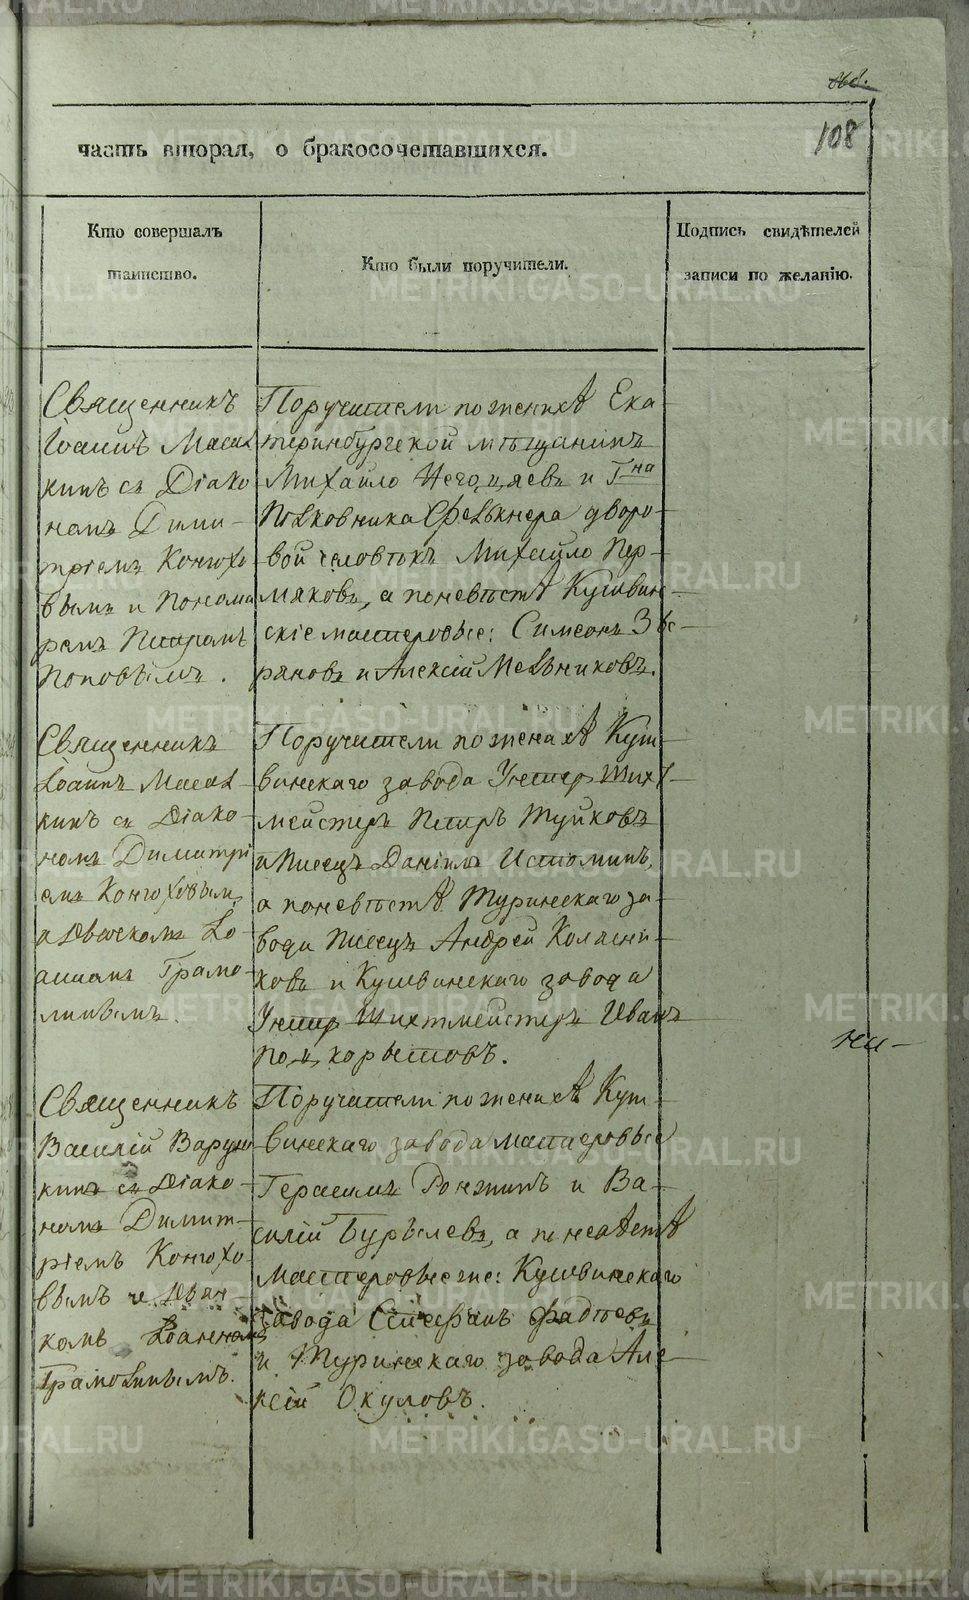 108
часть вторая, о бракосочетавшихся.
Кто совершалъ
таинство.
Кто были поручители.
Подпись свидѣтелей
записи по желанію.
Священникъ
Іоаннъ Масал
кинъ съ Діако
номъ Дими-
тріемъ Конюхо
вымъ и Понома
ремъ Петромъ
Поповымъ.
Поручители по женихѣ Ека
теринбургской мѣщанинъ
Михайло и Гна
Полковника Фелькнера дворо-
вой человѣкъ Михайло Пер-
мяковъ, а по невѣстѣ Кушвин-
скіе мастеровые: Симеонъ Звѣ-
ряновъ и Алексій Мельниковъ.
Священникъ
Іоаннъ Масал
кинъ съ Діако-
номъ Димитрі
емъ Конюховымъ,
и Дьячкомъ Іо-
анномъ Грамо-
линымъ.
Поручители по женихѣ Куш-
винскаго завода Унтер Шихт-
мейстеръ Петръ Туйковъ
и Писецъ Даніилъ Истоминъ,
а по невѣстѣ Туринскаго за-
вода Писецъ Андрей Колясни-
ковъ и Кушвинскаго завода
Унтер Шихтмейстеръ Иванъ
Священникъ
Василій
кинъ съ Діако-
номъ Димит-
ріемъ Конюхо-
вымъ и Дьяч-
комъ Іоанномъ
Грамолинымъ.
Поручители по женихѣ Куш-
винскаго завода мастеровые
Герасимъ Ронжинъ и Ва-
силій Бурылевъ, а по невѣстѣ
мастеровые же: Кушвинскаго
завода Стефанъ Фадѣевъ
и Туринскаго завода Але-
ксій Окуловъ.
METRIKI.GASO-URAL.RU